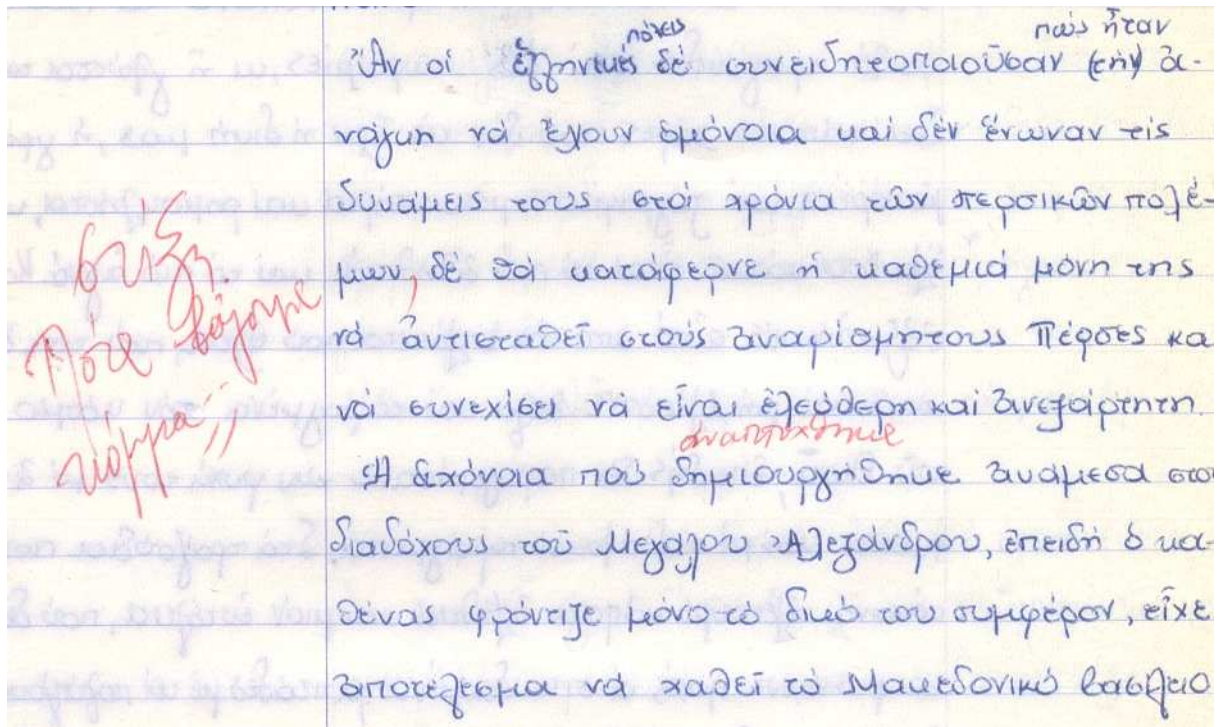 πόλεις πώς ἦταν
Ἄν οἱ ἑλληνικές δέ συνειδητοποιοῦσαν (τήν) ἀ-
νάγκη νά ἔχουν ὁμόνοια καί δέν ἕνωναν τίς
δυνάμεις τους στά χρόνια τῶν περσικῶν πολέ-
μων, δέ θά κατάφερνε ἡ καθεμιά μόνη της
νά ἀντισταθεῖ στούς ἀναρίσμητους Πέρσες κα
νά συνεχίσει νά εἶναι ἐλεύθερη καί ἀνεξάρτητη.
ἀναπτύχθηκε
Ἡ διχόνοια πού δημιουργήθηκε ἀνάμεσα στου
διαδόχους τοῦ Μεγάλου Ἀλεξάνδρου, ἐπειδή ὁ κα-
θένας φρόντιζε μόνο τό δικό του συμφέρον, εἶχε
ἀποτέλεσμα νά χαθεῖ τό Μακεδονικό βασίλειο
στίξη.
Πότε βάζουμε
κόμμα;